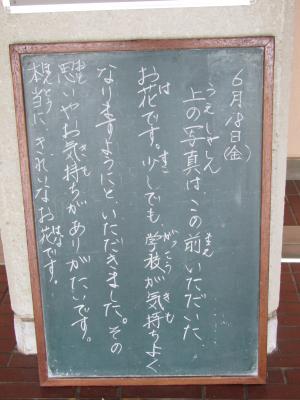 6月18日(金)
上の写真は、この前いただいた
お花です。少しでも、学校が気持ちよく
なりますようにと、いただきました。その
思いやお気持ちがありがたいです。
本当に、きれいなお花です。